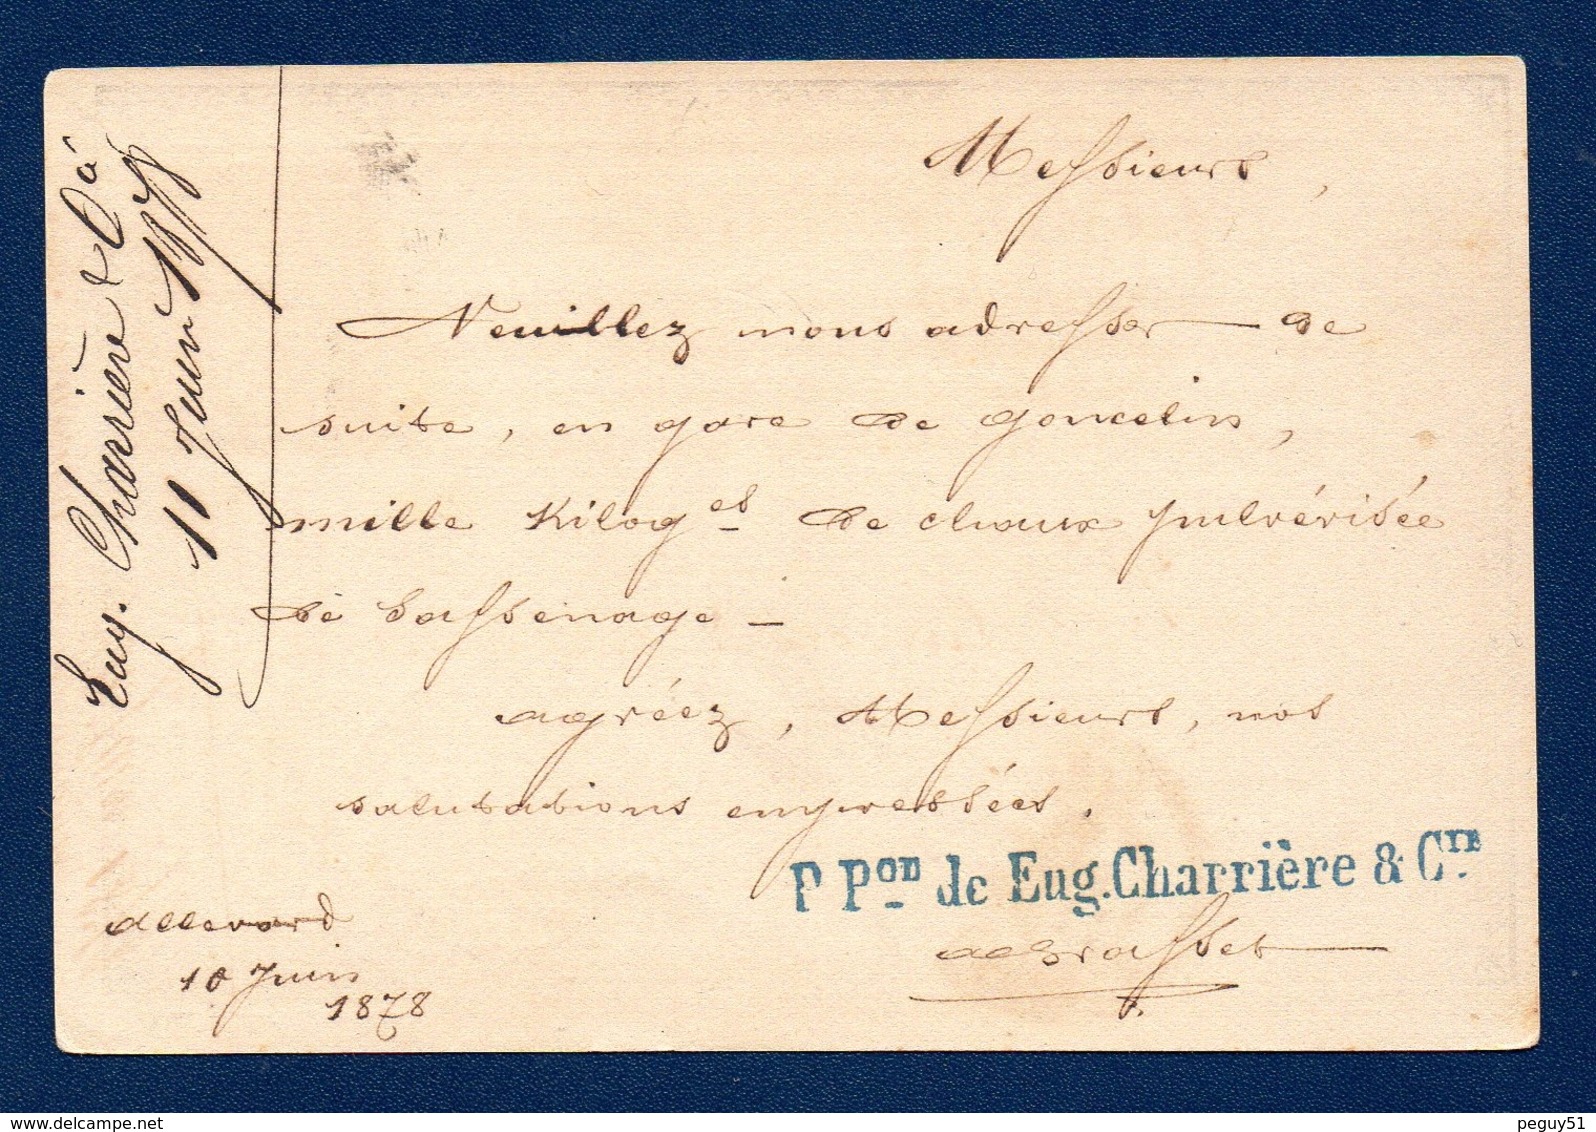 Messieurs,
Veuillez nous adresser de
suite, en gare de Goncelin,
mille Kilog.es de chaux pulvérisée
de Sassenage –
agréez, Messieurs, nos
salutations empressées.
P Pon de Eug. Charrière & Cie.
Allevard
10 Juin
1878
Eug. Charrière & Cie
11 Juin 1878
www.delcampe.net
peguy51